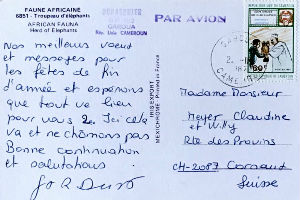 FAUNE AFRICAINE
6851 - Troupeau d'éléphants
AFRICAN FAUNA
Herd of Elephants
GAROUA
CAMEROUN
PAR AVION
Nos meilleurs voeux
et messages pour
les fêtes de fin
d'année et espérons
que tout va bien
pour vous 2. Ici cela
va et ne chômons pas
Bonne continuation
et salutations
IRIS EXPORT
MEXICHROME
Printed in France
Madame Monsieur
Meyer Claudine
et Willy
Rte des Provins
CH-2087 Cornaux
Suisse